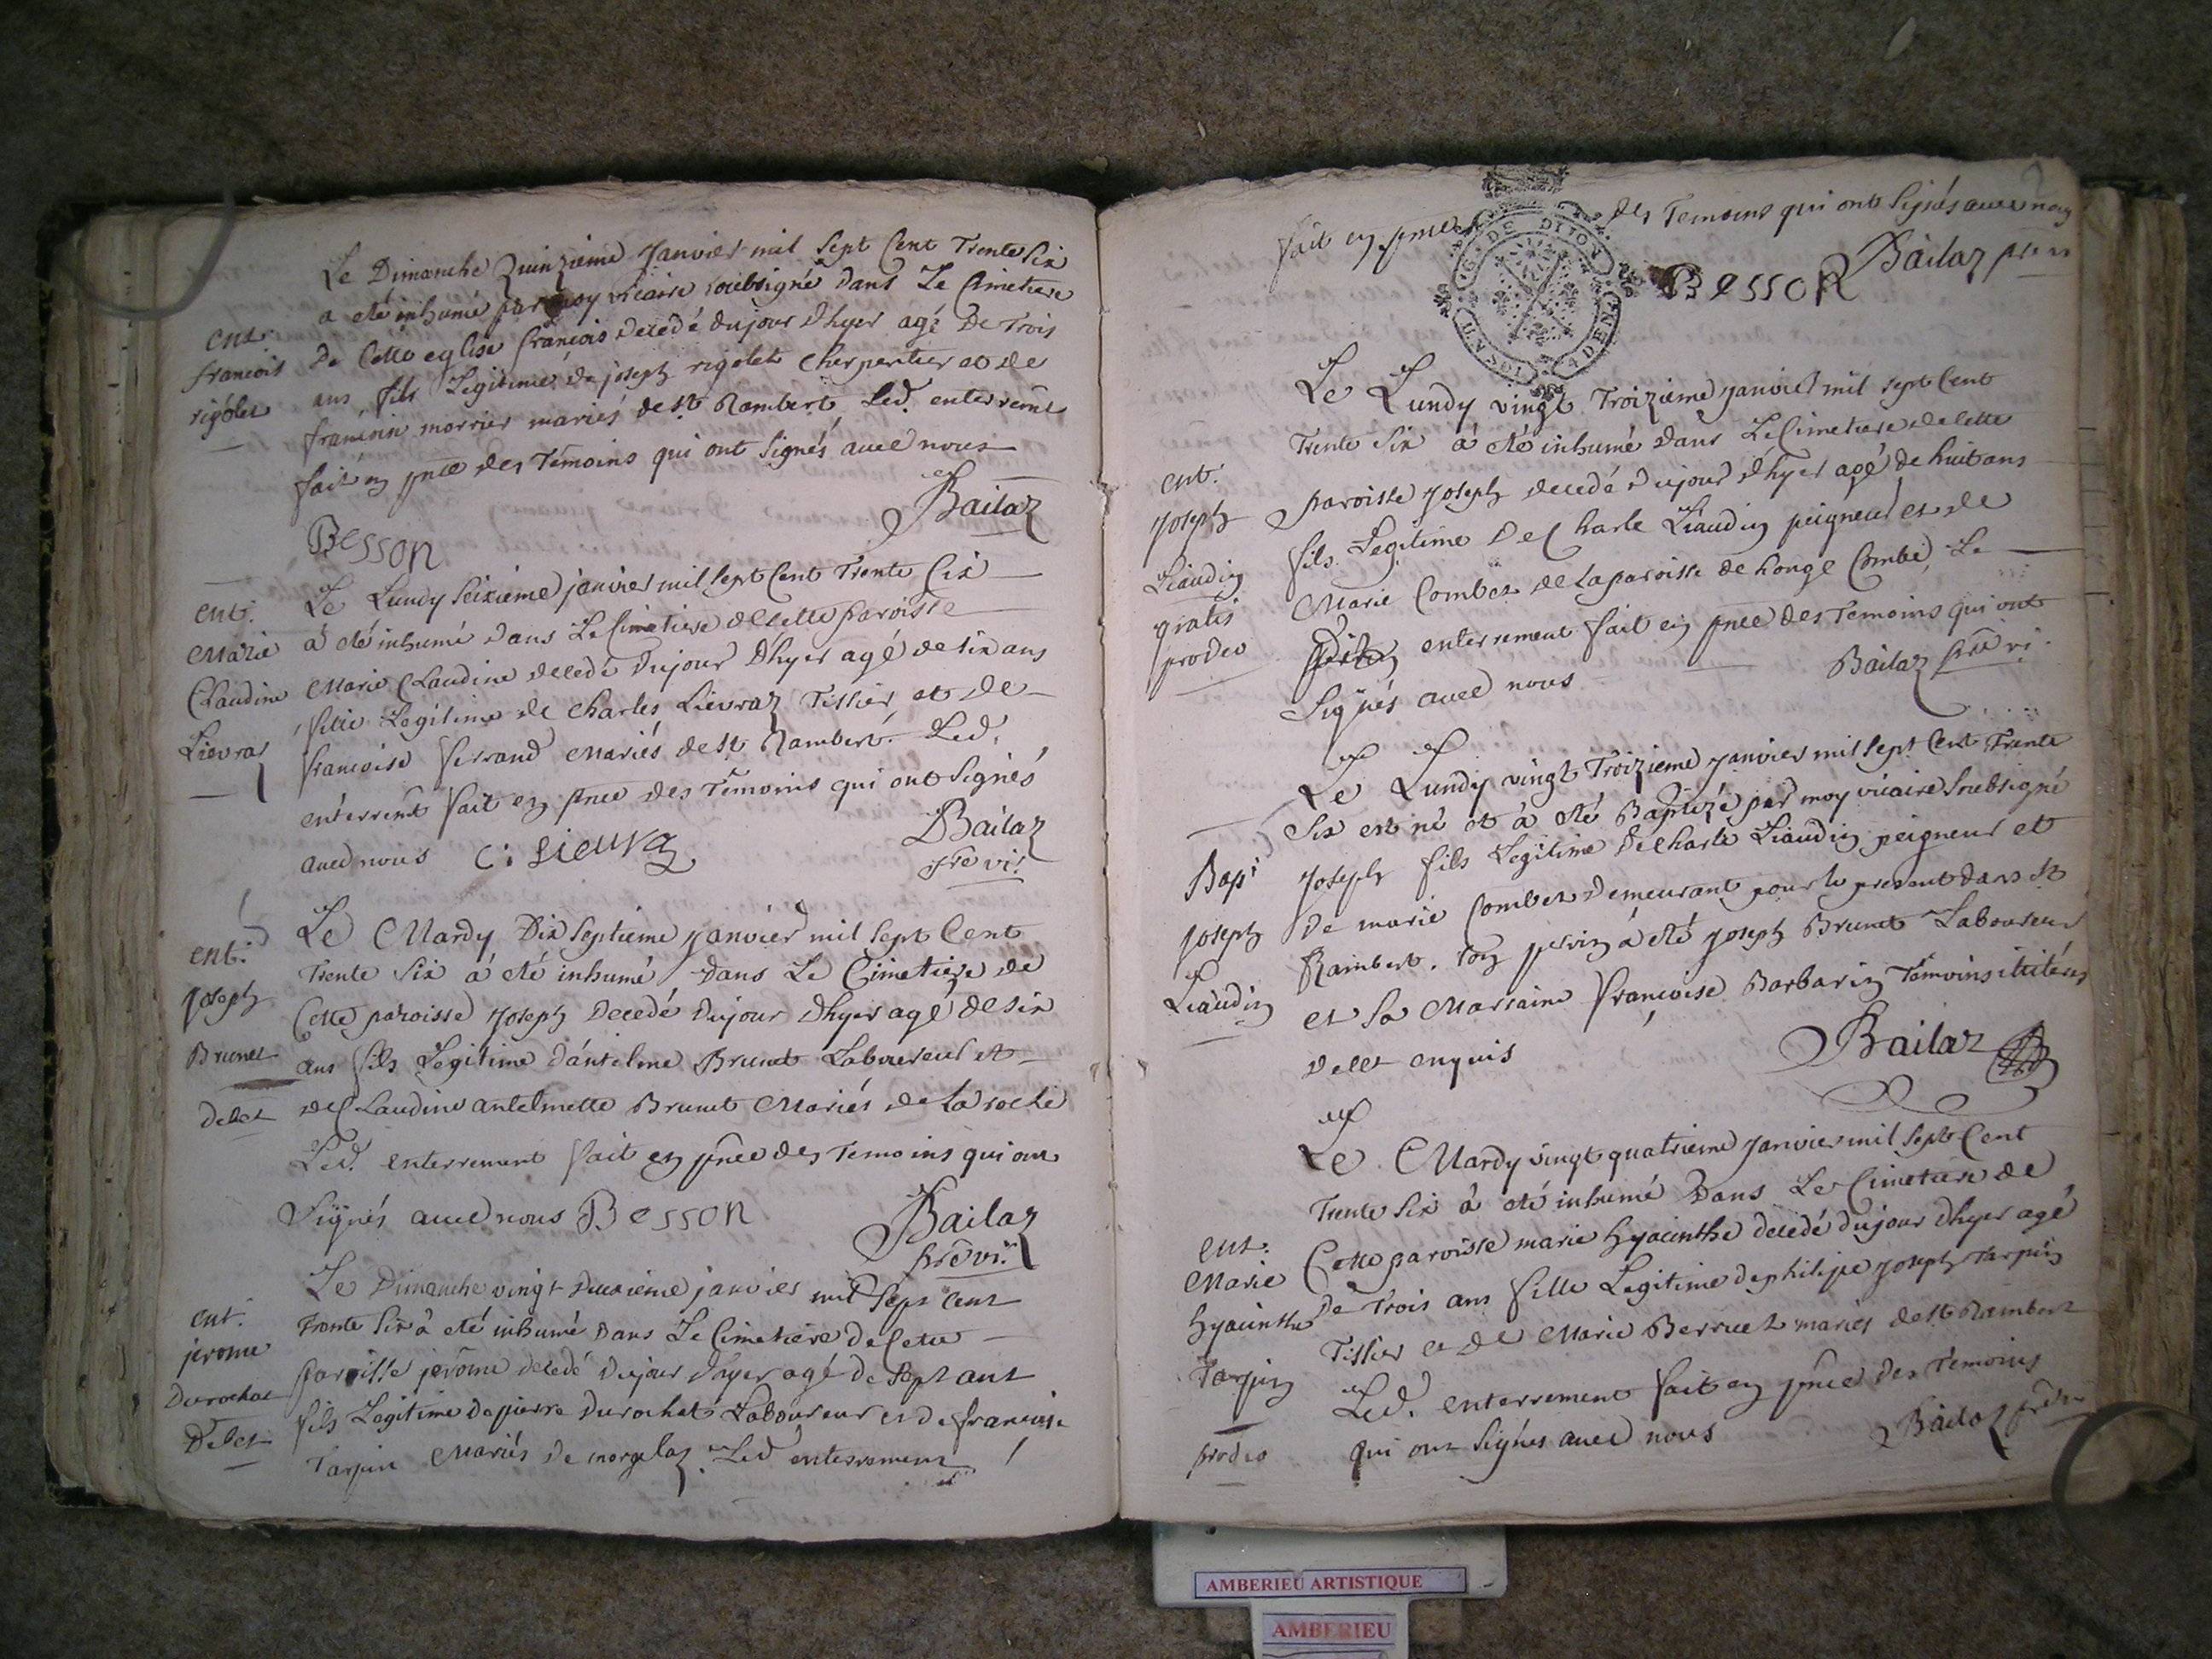 Le Dimanche Quinzieme Janvier mil sept Cent Trente Six
a eté inhumé par moy vicaire soubsigné dans Le Cimetiere
De Cette eglise françois decedé dujour d'hyer agé De Trois
ans fils Legitime de joseph rigolet Cherpentier et de
françoise morrier mariés de st Rambert Led. enterremt
fait en pnce des Temoins qui ont Signés avec nous
ent.
françois
rigolet
Bailaz
Besson
Le Lundy Seizieme janvier mil sept Cent Trente Six
à eté inhumé dans Le Cimetiere de Cette paroisse
Marie Claudine decedé Dujour D'hyer agé de six ans
fille Legitime de Charles Lievraz Tissier, et de
françoise ferrand Mariés de st Rambert. Led.
enterremt fait en pnce des Temoins qui ont Signés
avec nous C: Lieura
ent.
Marie
Claudine
Lievraz
Bailaz
pre vi.
Le Mardy Dix Septieme janvier mil sept Cent
Trente Six à eté inhumé Dans Le Cimetiere de
Cette paroisse Joseph Decedé Dujour Dhyer agé de six
ans fils Legitime d'antelme Brunet Laboureur et
de Claudine antelmette Brunet Mariés de La roche
Led. enterrement fait en pnce des Temoins qui ont
Signés avec nous Besson
ent.
Joseph
Brunet
debet
Bailaz
pre vi.
Le Dimanche vingt Deuxieme janvier mil Sept Cent
trente Six à eté inhumé Dans Le Cimetiere de Cette
paroisse jerome decedé Dujour d'hyer agé de Sept ans
fils Legitime de pierre Durochat Laboureur et de françoise
Tarpin Mariés de morgelaz Led enterrement
ent.
jerome
Durochat
Debet
fait en pnce des Temoins qui ont Signés avec nous
G. DE DIJON
Besson Bailaz pre vi
Le Lundy vingt Troizieme janvier mil sept Cent
Trente Six à eté inhumé dans Le Cimetiere de Cette
paroisse Joseph decedé Dujour d'hyer agé de huit ans
fils Legitime De Charle Liaudin peigneur et de
Marie Combet de La paroisse de Longe Combe, Le
enterrement fait en pnce des Temoins qui ont
Signés avec nous
ent.
Joseph
Liaudin
gratis
prodeo
Bailaz pre vi.
Le Lundy vingt Troizieme janvier mil sept Cent Trente
Six est né et à eté Baptizé par moy vicaire Soubsigné
Joseph fils Legitime De Charle Liaudin peigneur et
De marie Combet Demeurant pour le present dans st
Rambert. son parrin à eté Joseph Brunet Laboureur
et Sa Marraine françoise Barbarin Temoins illiterés
de ce enquis
Bapt
Joseph
Liaudin
Bailaz
Le Mardy vingt quatrieme janvier mil sept Cent
Trente Six à eté inhumé Dans Le Cimetiere de
Cette paroisse marie hyacinthe decedé dujour d'hyer agé
De Trois ans fille Legitime de philipe Joseph Tarpin
Tissier et de Marie Berruet mariés de st Rambert
Led. enterrement fait en pnce des Temoins
qui ont Signés avec nous
ent.
Marie
hyacinthe
Tarpin
prodeo
Bailaz pre vi
AMBERIEU ARTISTIQUE
AMBERIEU